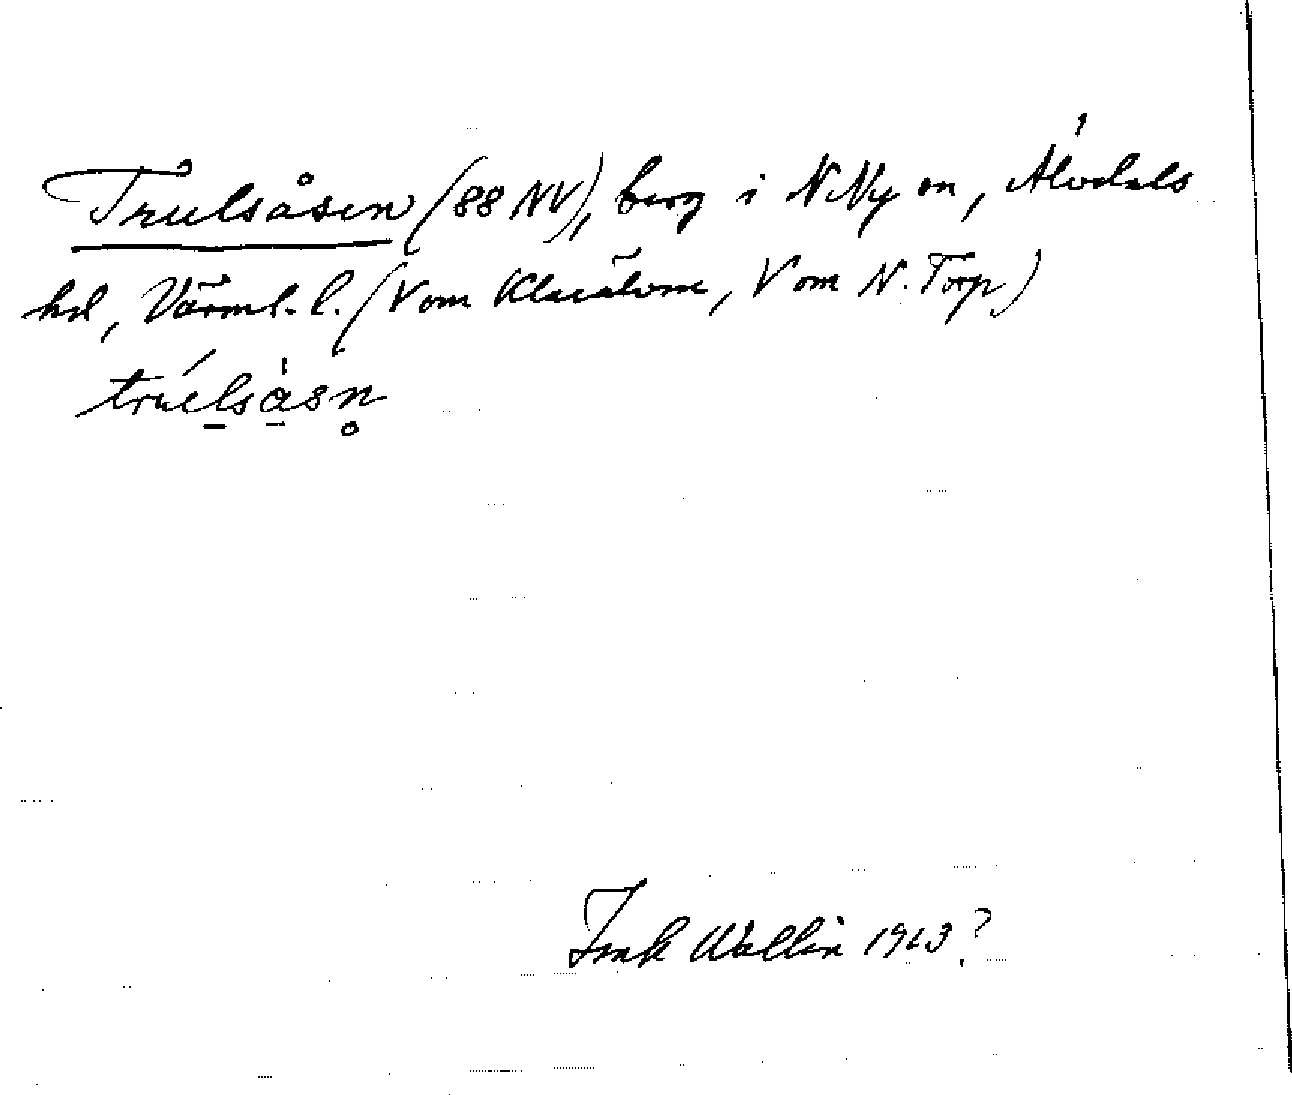 Trulsåsen (88 NV), berg i N Ny sn, Älvdals
hd, Värml. l. (V om Klarälven, V om N. Torp)
truelsåsn̥
Fredr Wallin 1913?